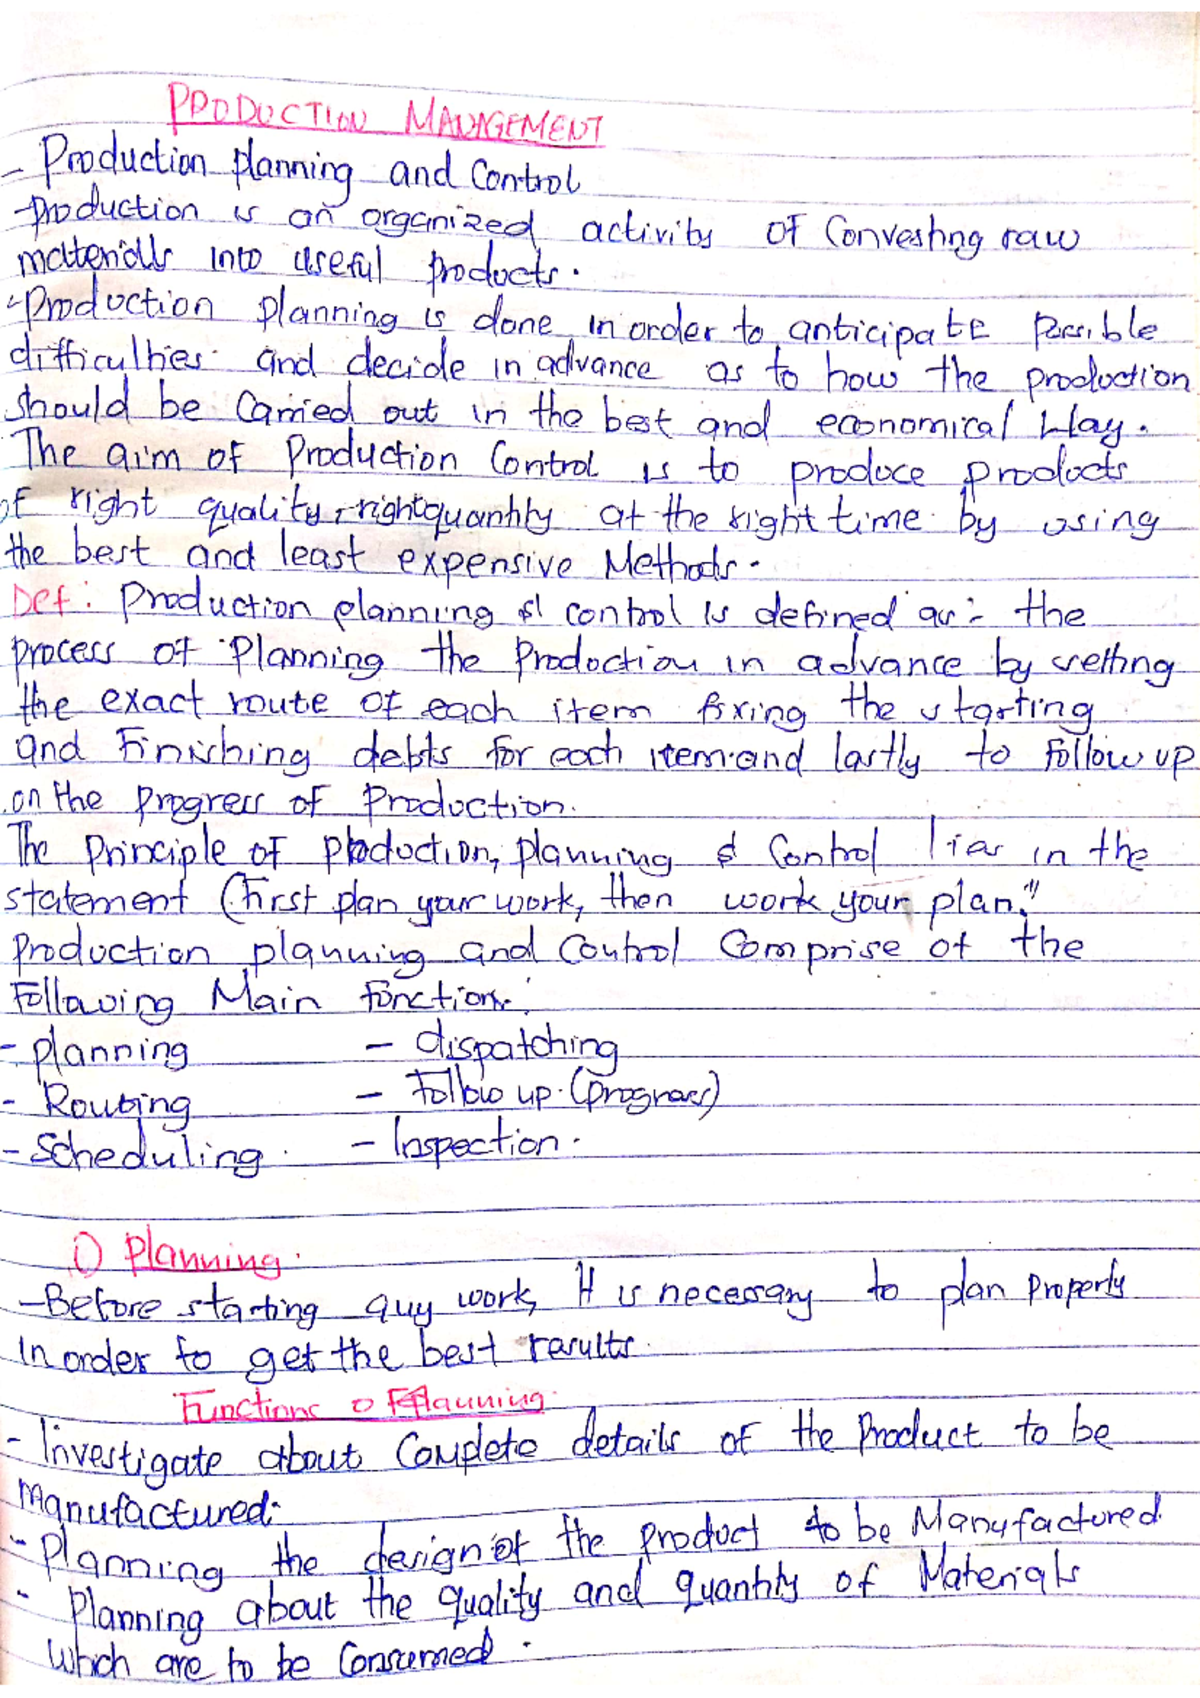 PRODUCTION MANAGEMENT
- Production planning and Control
- production is an organized activity of Converting raw
materials into useful products.
- Production planning is done in order to anticipate possible
difficulties and decide in advance as to how the production
should be Carried out in the best and economical Way.
The aim of Production Control is to produce products
of right quality, right quantity at the right time by using
the best and least expensive Methods.
Def: Production planning & control is defined as:- the
process of planning the Production in advance by setting
the exact route of each item fixing the starting
and Finishing debts for each item and lastly to Follow up
on the progress of Production.
The principle of production, planning & Control lies in the
statement (First plan your work, then work your plan."
production planning and Control Comprise of the
Following Main functions:
- planning - dispatching
- Routing - Follow up (progress)
- Scheduling. - Inspection.
1) Planning.
- Before starting any work, It is necessary to plan Properly
In order to get the best results.
Functions of Planning.
- Investigate about Complete details of the Product to be
Manufactured.
- Planning the design of the product to be Manufactured.
- Planning about the quality and quantity of Materials
which are to be Consumed.